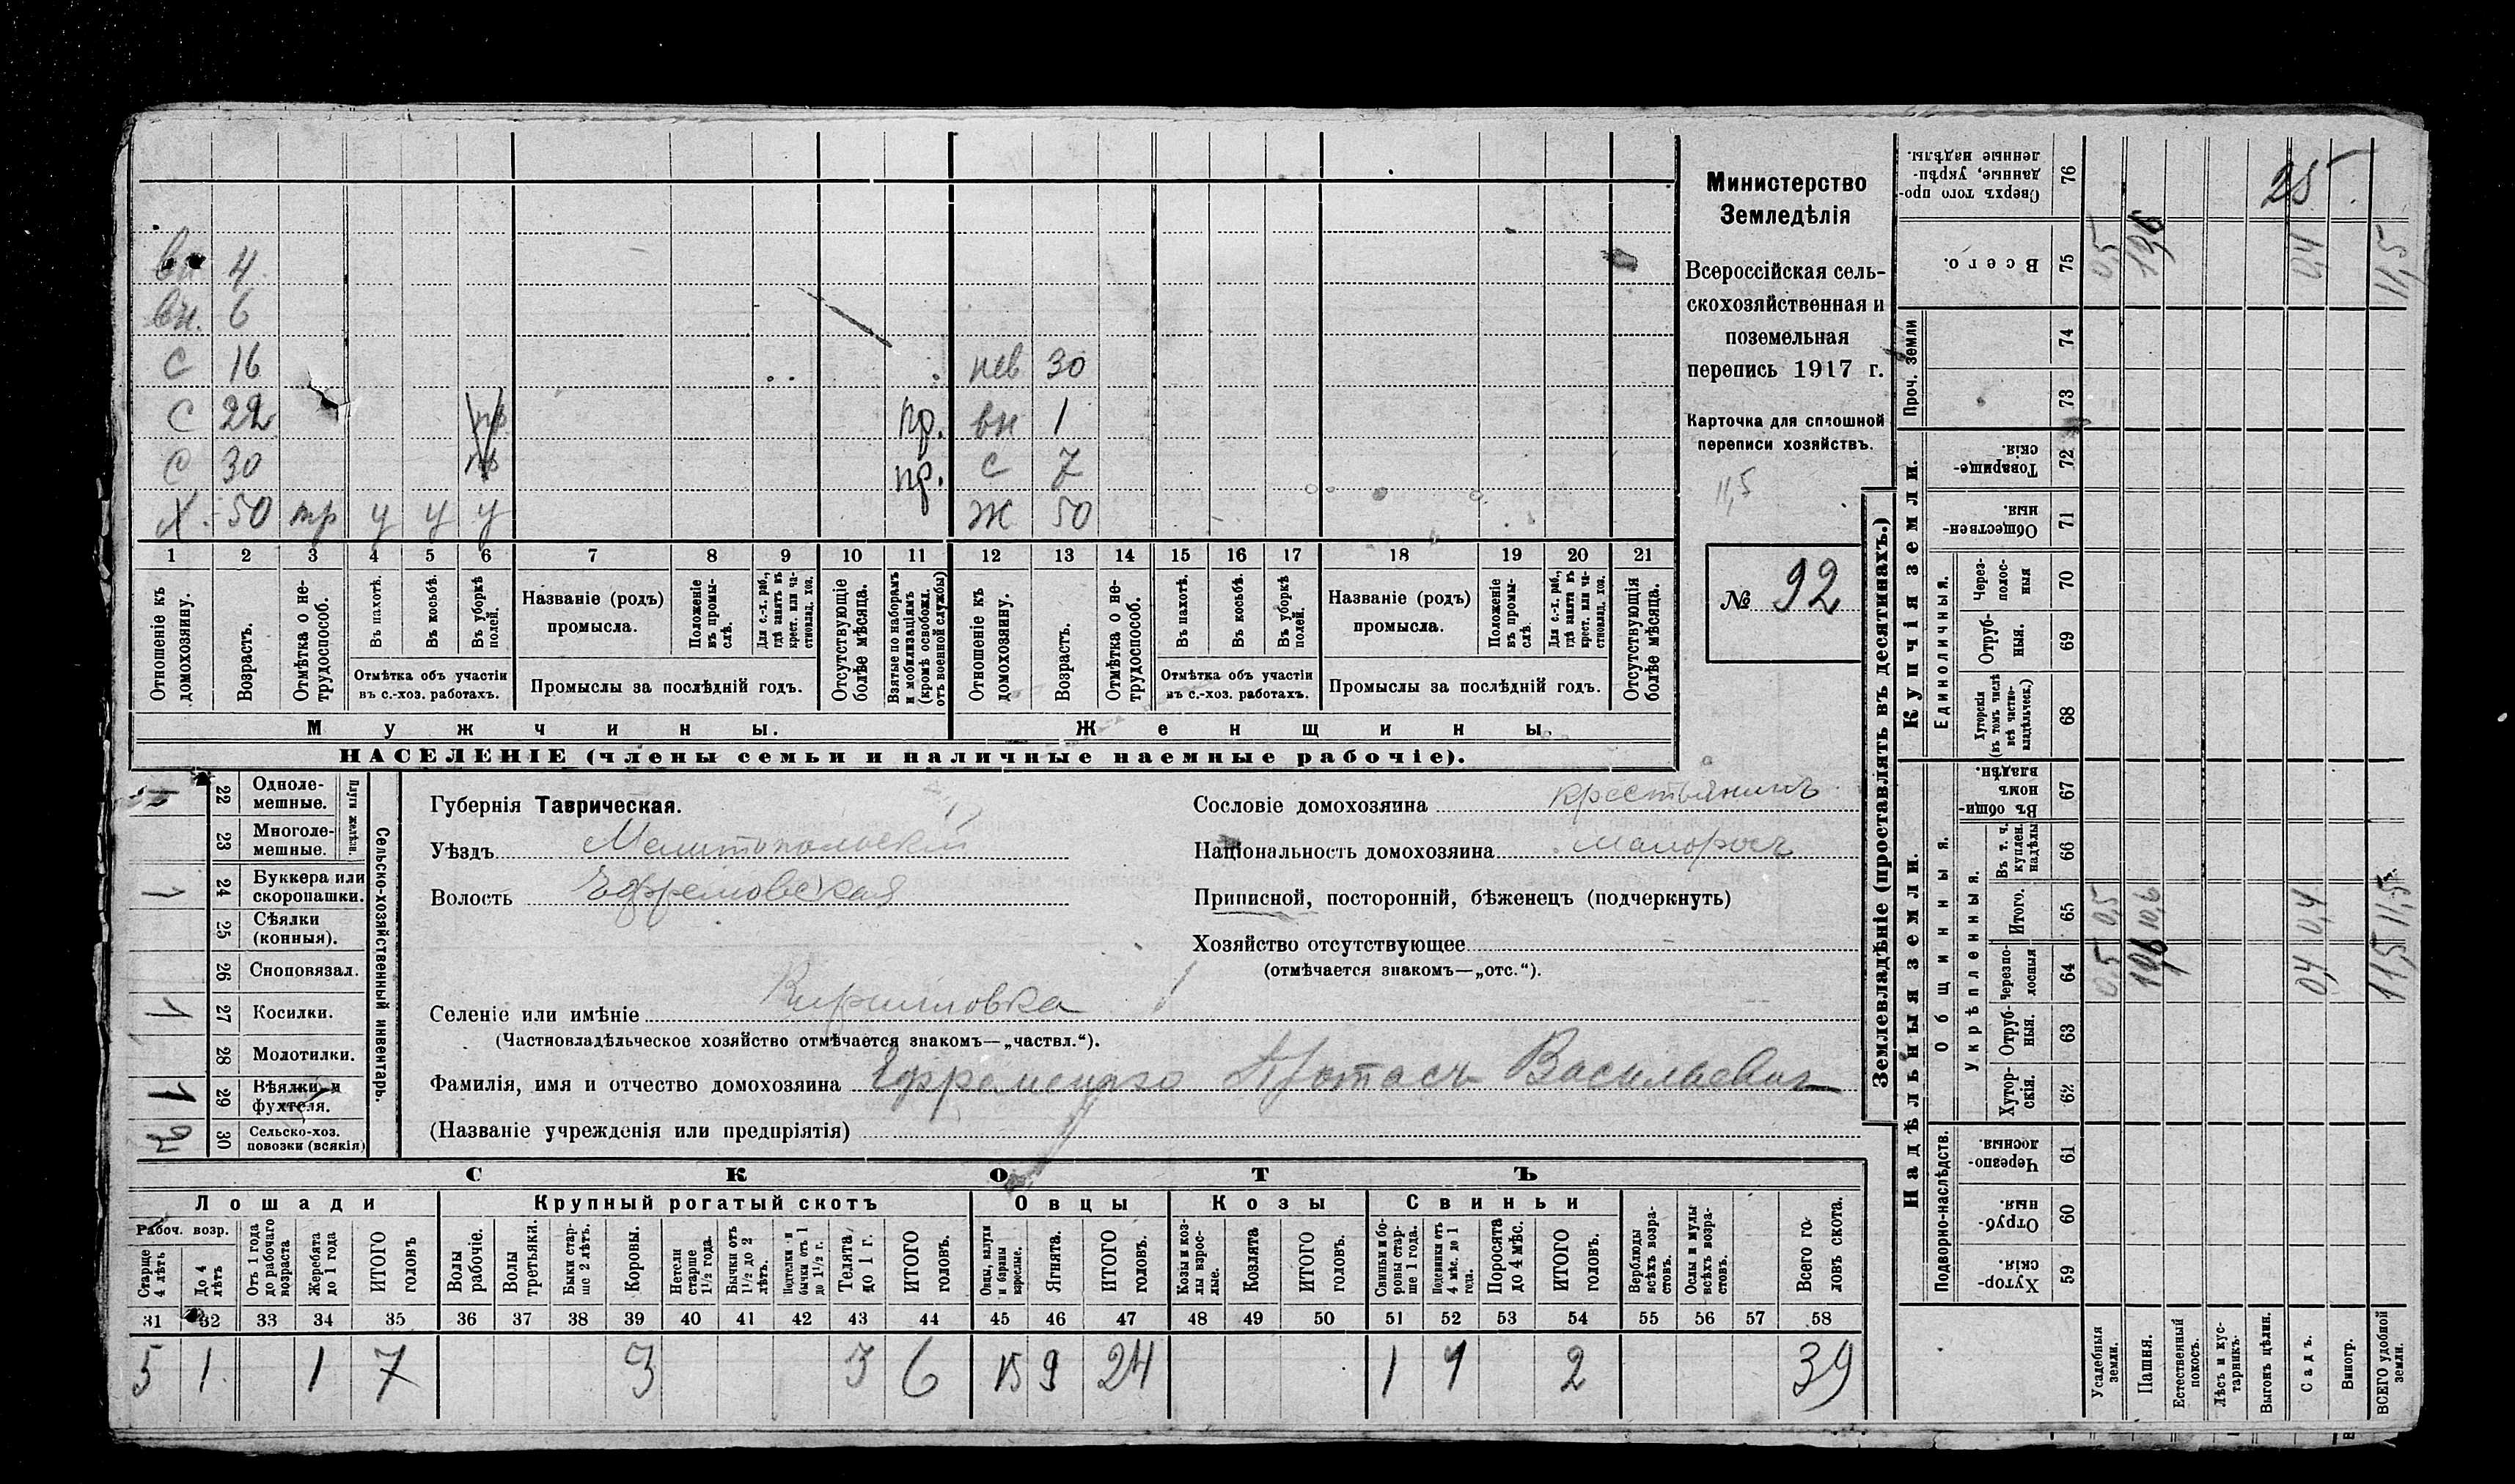 Министерство
Земледѣлія
Всероссійская сель-
скохозяйственная и
поземельная
перепись 1917 г.
Карточка для сплошной
переписи хозяйствъ.
11,5
№ 92
вн 4
вн. 6
с 16 нев 30
с 22 пр. вн 1
с 30 пр. с 7
х. 50 тр у у у ж 50
1 2 3 4 5 6 7 8 9 10 11 12 13 14 15 16 17 18 19 20 21
Отношеніе къ домохозяину.
Возрастъ.
Отмѣтка о не-трудоспособ.
Въ пахотѣ.
Въ косьбѣ.
Въ уборкѣ полей.
Отмѣтка объ участіи
въ с.-хоз. работахъ.
Названіе (родъ)
промысла.
Положеніе въ промы-слѣ.
Для с.-х. раб., гдѣ занятъ въ крест. или ча-стновлад. хоз.
Промыслы за послѣдній годъ.
Отсутствующіе болѣе мѣсяца.
Взятые по наборамъ и мобилизаціямъ (кромѣ освобожд. отъ военной службы)
Отношеніе къ домохозяину.
Возрастъ.
Отмѣтка о не-трудоспособ.
Въ пахотѣ.
Въ косьбѣ.
Въ уборкѣ полей.
Отмѣтка объ участіи
въ с.-хоз. работахъ.
Названіе (родъ)
промысла.
Положеніе въ промы-слѣ.
Для с.-х. раб., гдѣ занята въ крест. или ча-стновлад. хоз.
Промыслы за послѣдній годъ.
Отсутствующія болѣе мѣсяца.
Мужчины. Женщины.
НАСЕЛЕНІЕ (члены семьи и наличные наемные рабочіе).
Сельско-хозяйственный инвентарь.
Плуги желѣзн.
1 22 Одноле-мешные.
23 Многоле-мешные.
1 24 Буккера или скоропашки.
25 Сѣялки (конныя).
26 Сноповязал.
1 27 Косилки.
28 Молотилки.
1 29 Вѣялки и фухтеля.
30 Сельско-хоз. повозки (всякія)
Губернія Таврическая.
Уѣздъ Мелитопольскій
Волость Ефремовская
Сословіе домохозяина крестьянинъ
Національность домохозяина малоросъ
Приписной, посторонній, бѣженецъ (подчеркнуть)
Хозяйство отсутствующее
(отмѣчается знакомъ—„отс.“).
Селеніе или имѣніе Кирилловка
(Частновладѣльческое хозяйство отмѣчается знакомъ—„частвл.“).
Фамилія, имя и отчество домохозяина Ефременко Протасъ Васильевич
(Названіе учрежденія или предпріятія)
СКОТЪ
Лошади Крупный рогатый скотъ Овцы Козы Свиньи
Рабоч. возр.
Старше 4 лѣтъ
До 4 лѣтъ
Отъ 1 года до рабочаго возраста
Жеребята до 1 года
ИТОГО головъ
Волы рабочіе.
Волы третьяки.
Быки стар-ше 2 лѣтъ.
Коровы.
Нетели старше 1½ года.
Бычки отъ 1½ до 2 лѣтъ.
Подтелки и бычки отъ 1 до 1½ г.
Телята до 1 г.
ИТОГО головъ.
Овцы, валухи и бараны взрослые.
Ягнята.
ИТОГО головъ.
Козы и коз-лы взрос-лые.
Козлята
ИТОГО головъ.
Свиньи и бо-ровы стар-ше 1 года.
Подсвинки отъ 4 мѣс. до 1 года.
Поросята до 4 мѣс.
ИТОГО головъ.
Верблюды всѣхъ возра-стовъ.
Ослы и мулы всѣхъ возра-стовъ.
Всего го-ловъ скота.
31 32 33 34 35 36 37 38 39 40 41 42 43 44 45 46 47 48 49 50 51 52 53 54 55 56 57 58
5 1 1 7 3 3 6 15 9 24 1 1 2 39
Землевладѣніе (проставлять въ десятинахъ.)
Сверхъ того про-данные, укрѣп-ленные надѣлы. 76 25
Всего. 75 0,5 0,4 11,5
Проч. земли
74
73
Купчія земли.
Товарище-скія. 72
Обществен-ныя. 71
Единоличныя.
Через-полос-ныя 70
Отруб-ныя. 69
Хуторскія (въ томъ числѣ всѣ частно-владѣльческ.) 68
Надѣльныя земли.
Общинныя.
Въ общи-номъ владѣн. 67
Укрѣпленныя.
Въ т. ч. куплен. надѣлы 66
Итого. 65 0,5 10,6 0,4 11,5
Черезпо-лосныя 64 0,5 10,6 0,4 11,5
Отруб-ныя. 63
Хутор-скія. 62
Подворно-наслѣдств.
Черезпо-лосныя. 61
Отруб-ныя. 60
Хутор-скія. 59
Усадебныя земли.
Пашня.
Естественный покосъ.
Лѣсъ и кус-тарникъ.
Выгонъ цѣлин.
Садъ.
Виногр.
ВСЕГО удобной земли.